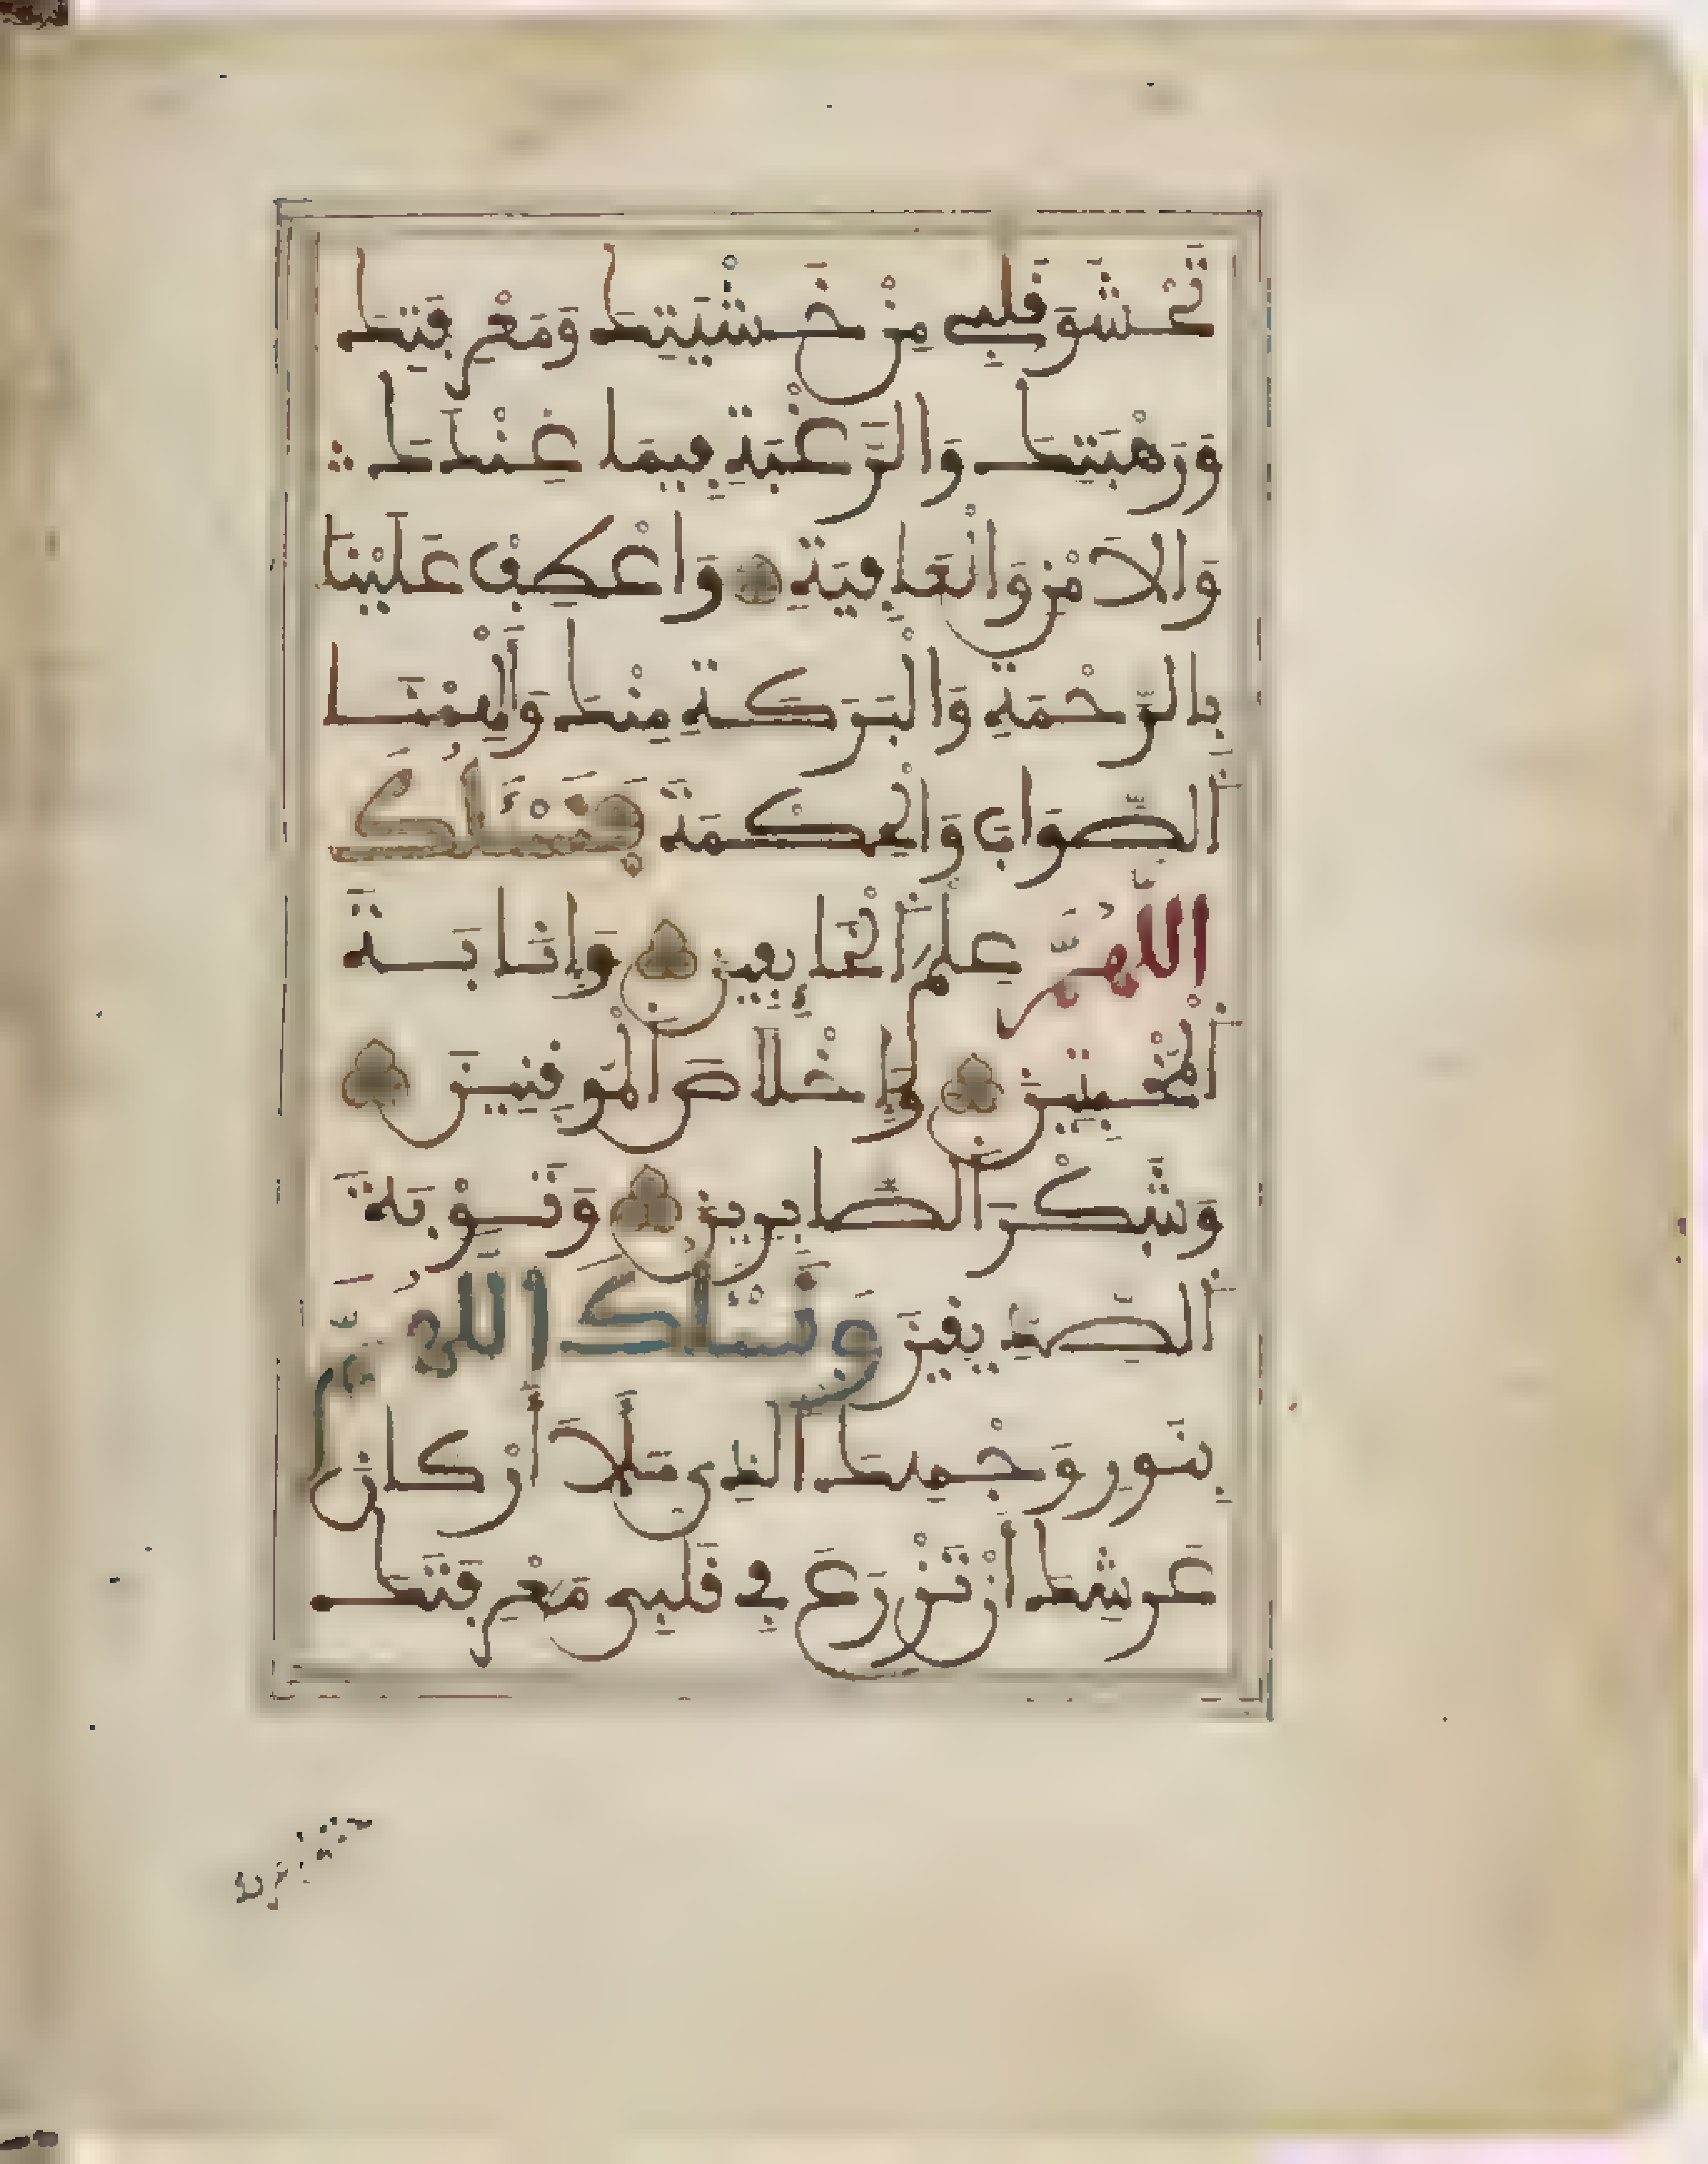 تَحْشُوَ قَلْبِي مِنْ خَشْيَتِكَ وَمَعْرِفَتِكَ
وَرَهْبَتِكَ وَالرَّغْبَةِ فِيمَا عِنْدَكَ
وَالاَمْنِ وَالْعَافِيَةِ وَاعْطِفْ عَلَيْنَا
بِالرَّحْمَةِ وَالْبَرَكَةِ مِنْكَ وَأَلْهِمْنَا
الصَّوَابَ وَالْحِكْمَةَ فَنَسْئَلُكَ
اللَّهُمَّ عِلْمَ الْخَائِفِينَ وَإِنَابَةَ
الْمُخْبِتِينَ وَإِخْلاَصَ الْمُوقِنِينَ
وَشُكْرَ الصَّابِرِينَ وَتَوْبَةَ
الصِّدِّيقِينَ وَنَسْئَلُكَ اللَّهُمَّ
بِنُورِ وَجْهِكَ الَّذِي مَلَأَ أَرْكَانَ
عَرْشِكَ أَنْ تَزْرَعَ فِي قَلْبِي مَعْرِفَتَكَ